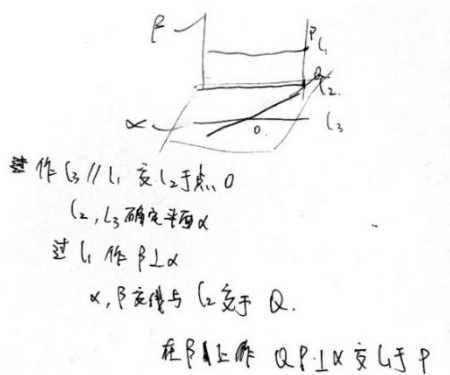 β
P
l₁
Q
l₂
α
O
l₃
作 l₃ // l₁ 交 l₂ 于点 O
l₂, l₃ 确定平面 α
过 l₁ 作 β⊥α
α, β 交线与 l₂ 交于 Q.
在 β 上作 QP⊥α 交 l₁ 于 P